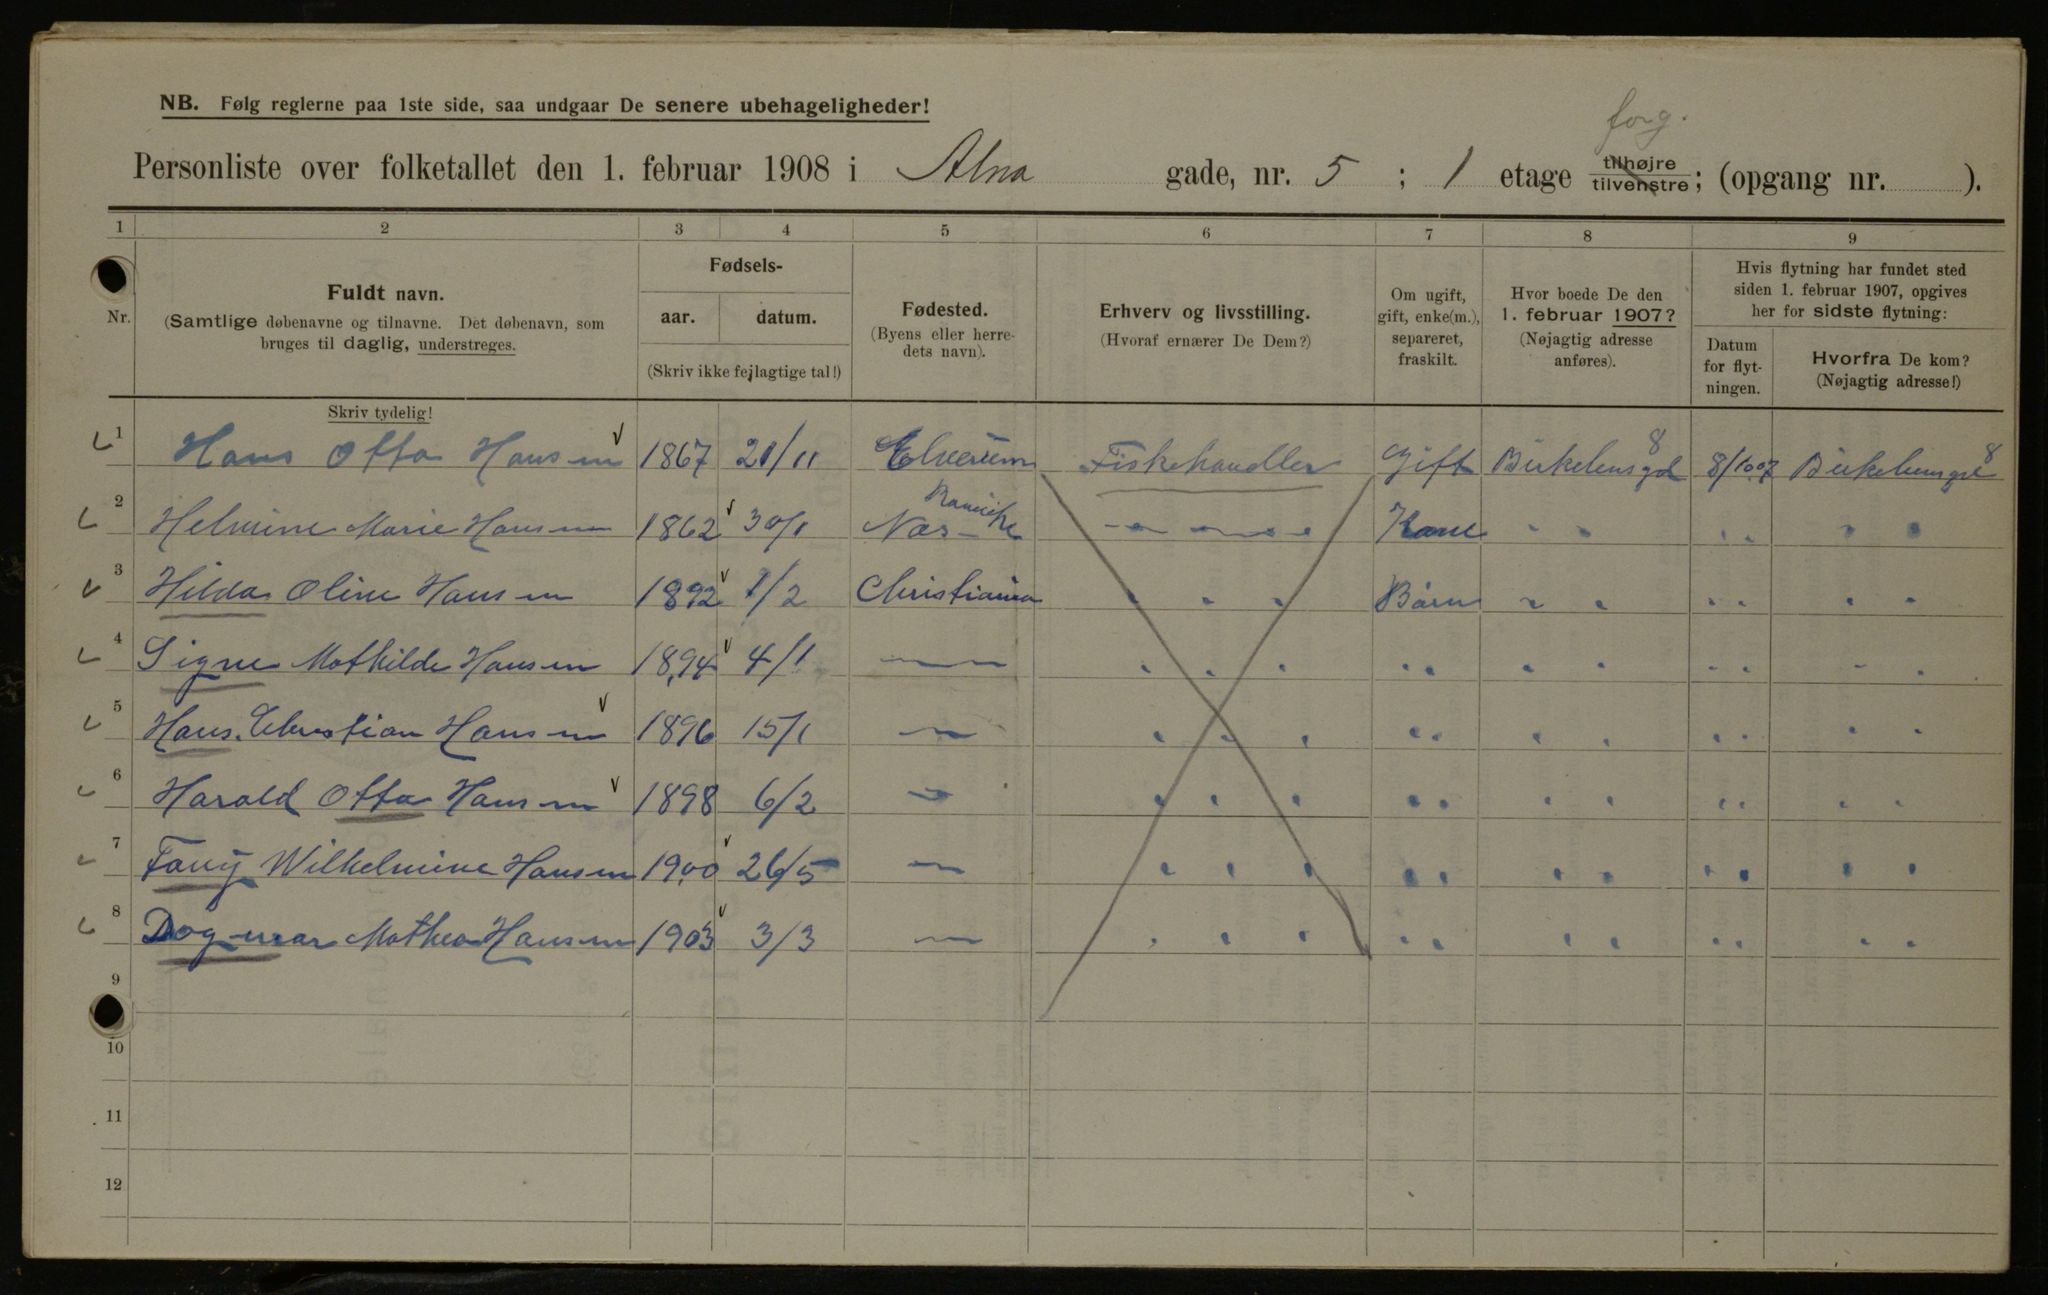 NB. Følg reglerne paa 1ste side, saa undgaar De senere ubehageligheder!
forg.
Personliste over folketallet den 1. februar 1908 i Alna gade, nr. 5 ; 1 etage tilhøjre tilvenstre; (opgang nr. ).
1 2 3 4 5 6 7 8 9
Nr.
Fuldt navn.
(Samtlige døbenavne og tilnavne. Det døbenavn, som
bruges til daglig, understreges.
Skriv tydelig!
Fødsels-
aar. datum.
(Skriv ikke fejlagtige tal!)
Fødested.
(Byens eller herre-
dets navn).
Erhverv og livsstilling.
(Hvoraf ernærer De Dem?)
Om ugift,
gift, enke(m.),
separeret,
fraskilt.
Hvor boede De den
1. februar 1907?
(Nøjagtig adresse
anføres).
Hvis flytning har fundet sted
siden 1. februar 1907, opgives
her for sidste flytning:
Datum
for flyt-
ningen.
Hvorfra De kom?
(Nøjagtig adresse!)
1 Hans Otto Hansen 1867 21/11 Elverum Fiskehandler Gift Birkelunsgd 8 8/10 07 Birkelunsgd 8
2 Helmine Marie Hansen 1862 30/1 Næs - - - - - Kone " " " " " "
3 Hilda Oline Hansen 1892 1/2 Christiania " " " Børn " " " " " "
4 Signe Mathilde Hansen 1894 4/1 — " " " " " " " " " - "
5 Hans Christian Hansen 1896 15/1 — " " " " " " " " " " "
6 Harald Otto Hansen 1898 6/2 — " " " " " " " " " " "
7 Fany Wilhelmine Hansen 1900 26/5 — " " " " " " " " " " "
8 Dagmar Mathea Hansen 1903 3/3 — " " " " " " " " " " "
9
10
11
12